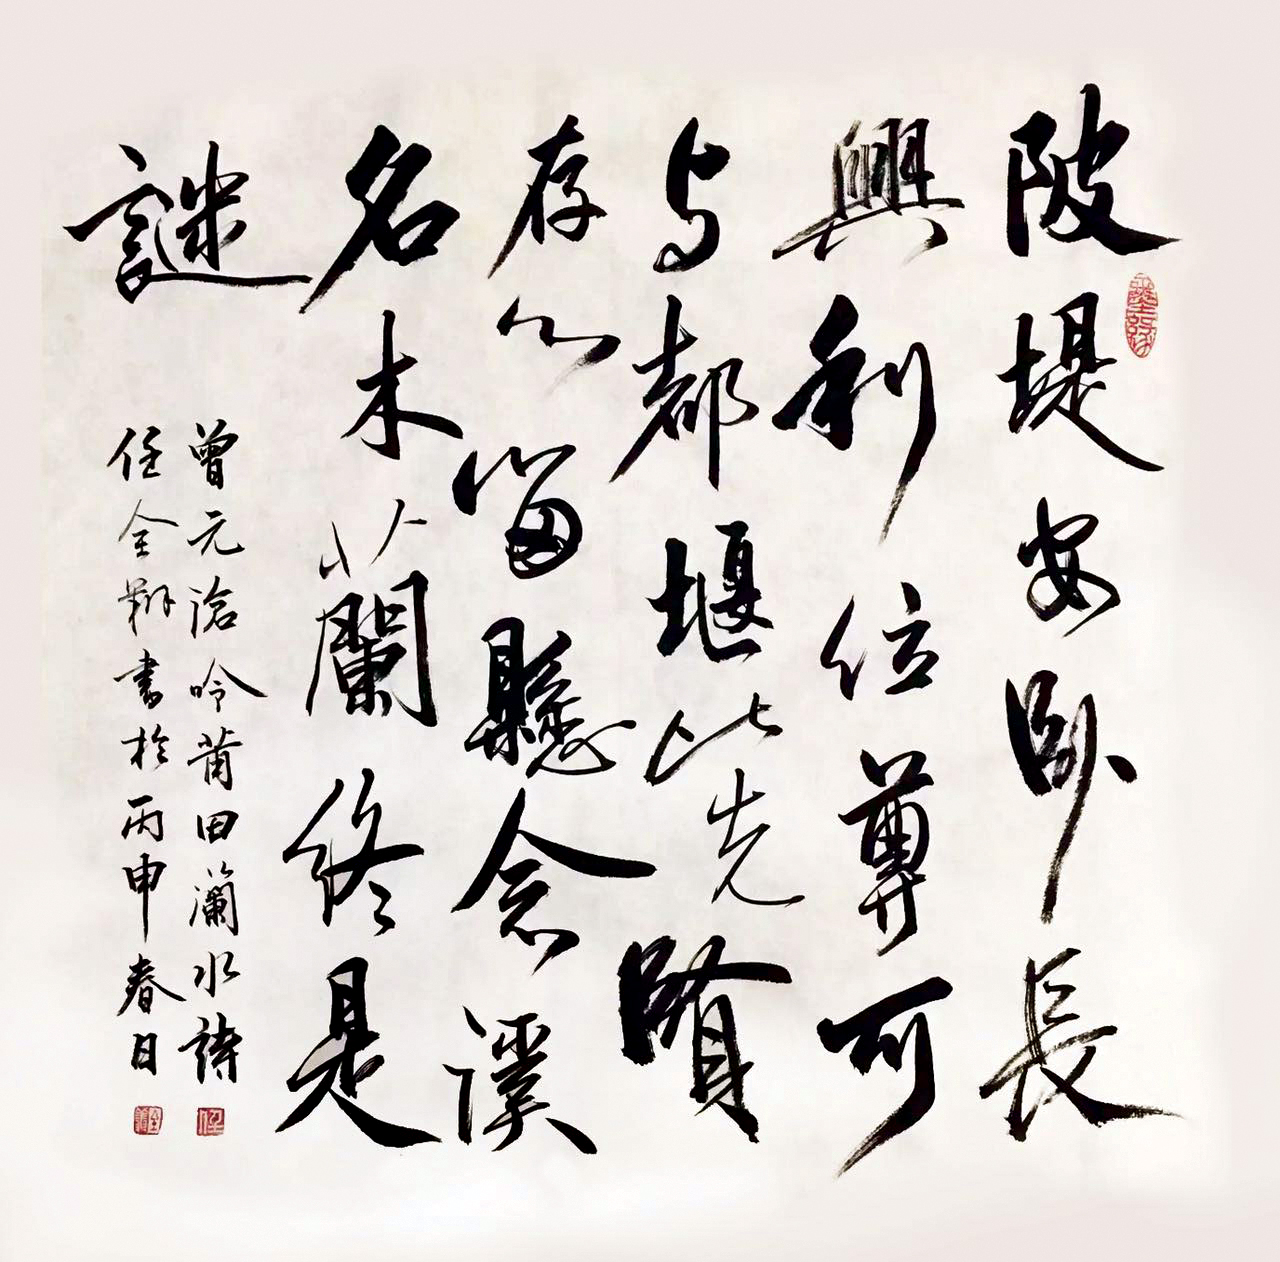 陂堤安卧長
興利位尊可
与都堰比先賢
存心留懸念溪
名木蘭終是
謎
曾元滄吟莆田瀾水詩
任全翔書於丙申春日